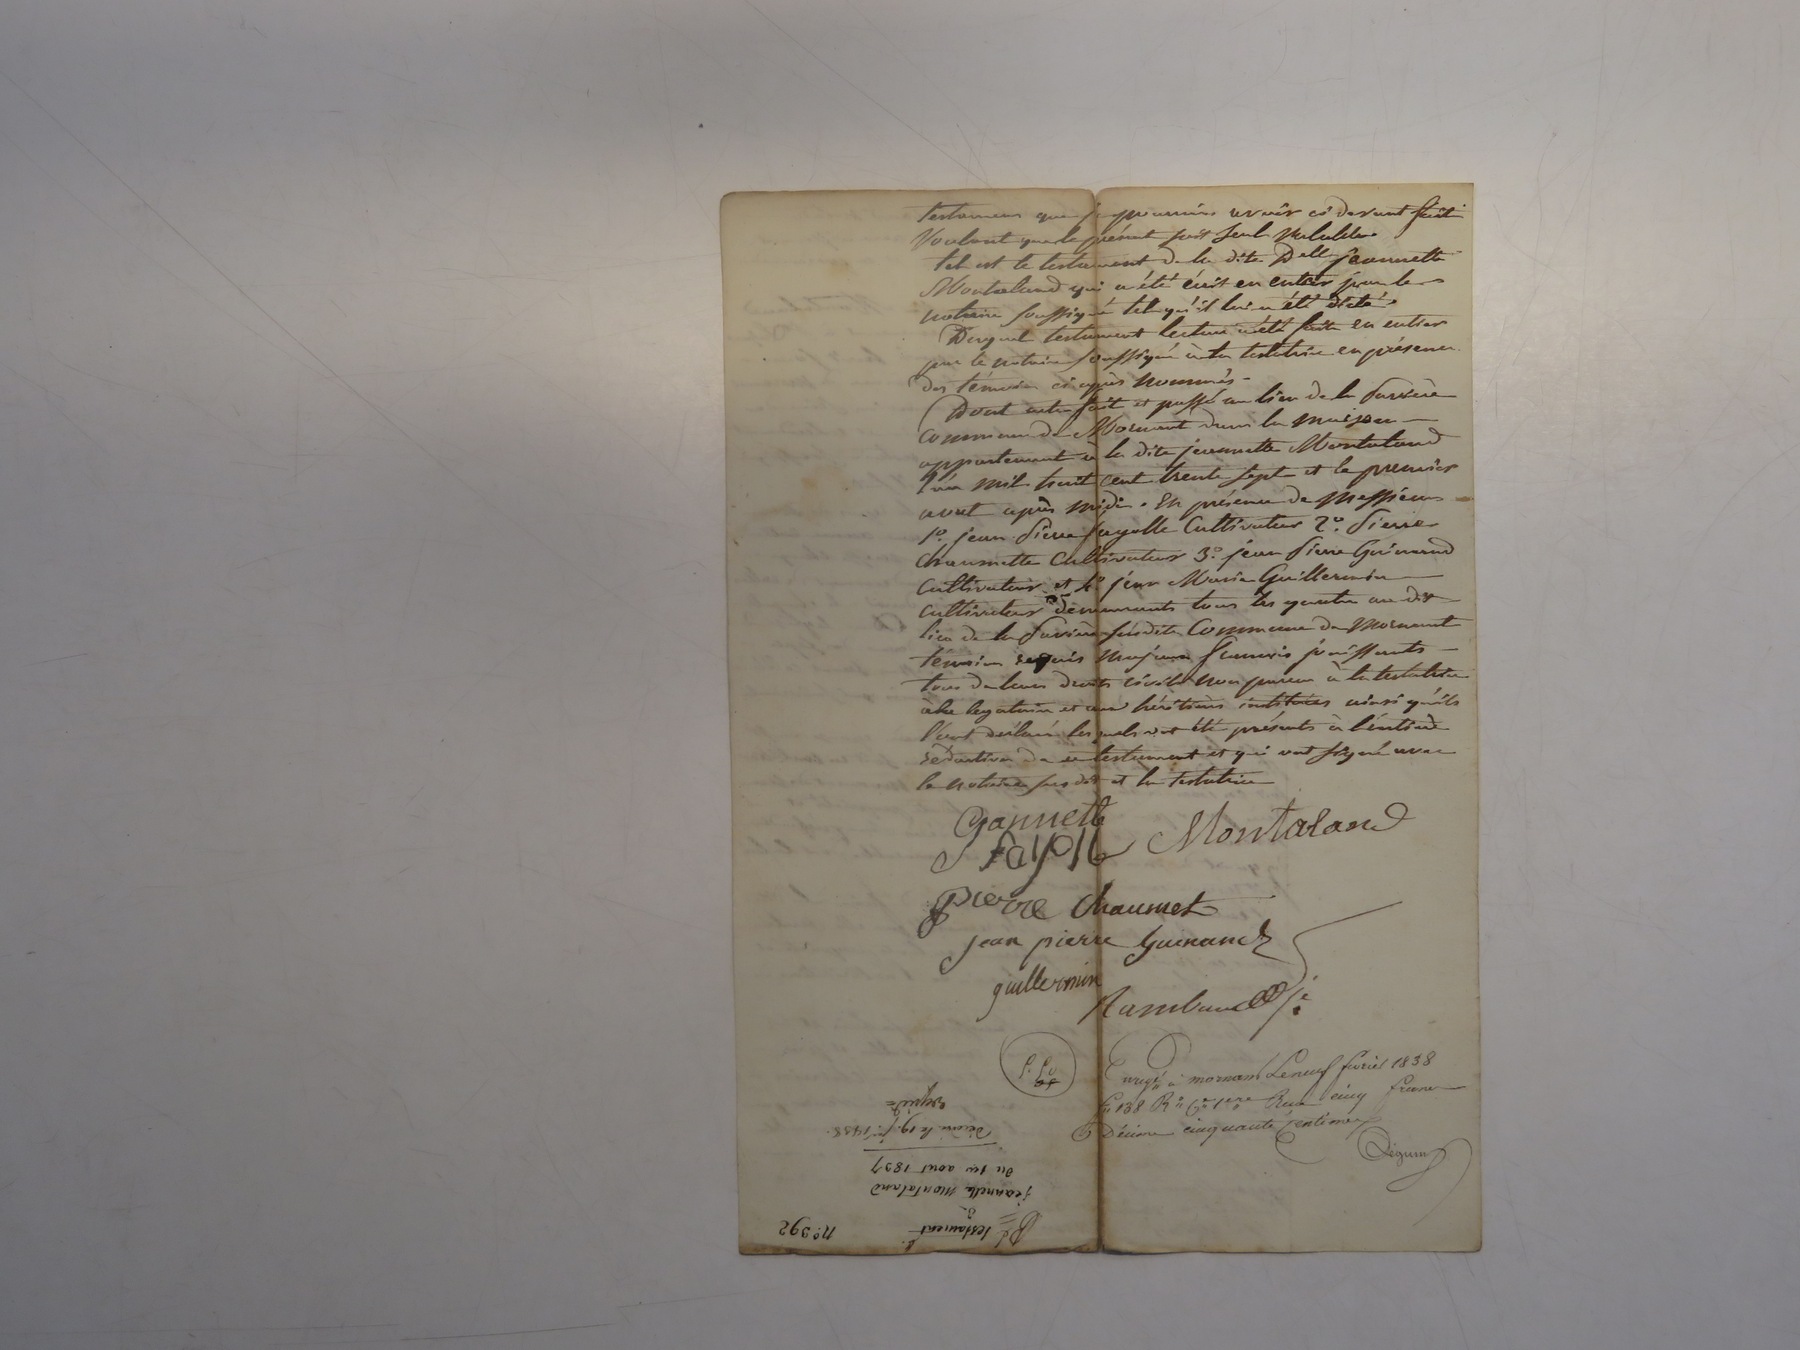 testamens que je pourrais avoir ci devant fait
Voulant que le présent soit seul valable.
tel est le testament de la dite Delle jeannette
Montaland qui a été écrit en entier par le
notaire soussigné tel qu'il lui a été dicté.
Duquel testament lecture a été faite en entier
par le notaire soussigné à la testatrice en présence
des témoins ci après nommés.
Dont acte fait et passé au lieu de la
commune de Mornant dans la maison
appartenant à la dite jeannette Montaland
l'an mil huit cent trente sept et le premier
aout après midi. En présence de Messieurs
1º. jean Pierre fayolle Cultivateur 2º. Pierre
chaumette Cultivateur 3º. jean Pierre Guinand
cultivateur et 4º. jean Marie Guillermin
cultivateur demeurants tous les quatre au dit
lieu de la susdite Commune de Mornant
témoins requis majeurs français jouissants
tous de leurs droits civils non parens à la testatrice
à la légataire et aux héritiers institués ainsi qu'ils
l'ont déclaré lesquels ont été présents à l'entière
rédaction de ce testament et qui ont signé avec
le notaire susdit et la testatrice
Gannette Montaland
fayolle
pierre chaumet
jean pierre Guinand
guillermin
Rambaud je
Enregé à mornant Le neuf février 1838
fº 138 Rº Cº 1ere Reçu cinq francs
Décime cinquante Centimes
expéd=
décédée le 19. jer. 1838.
du 1er aout 1837
jeannette Montaland
testament
Nº. 392